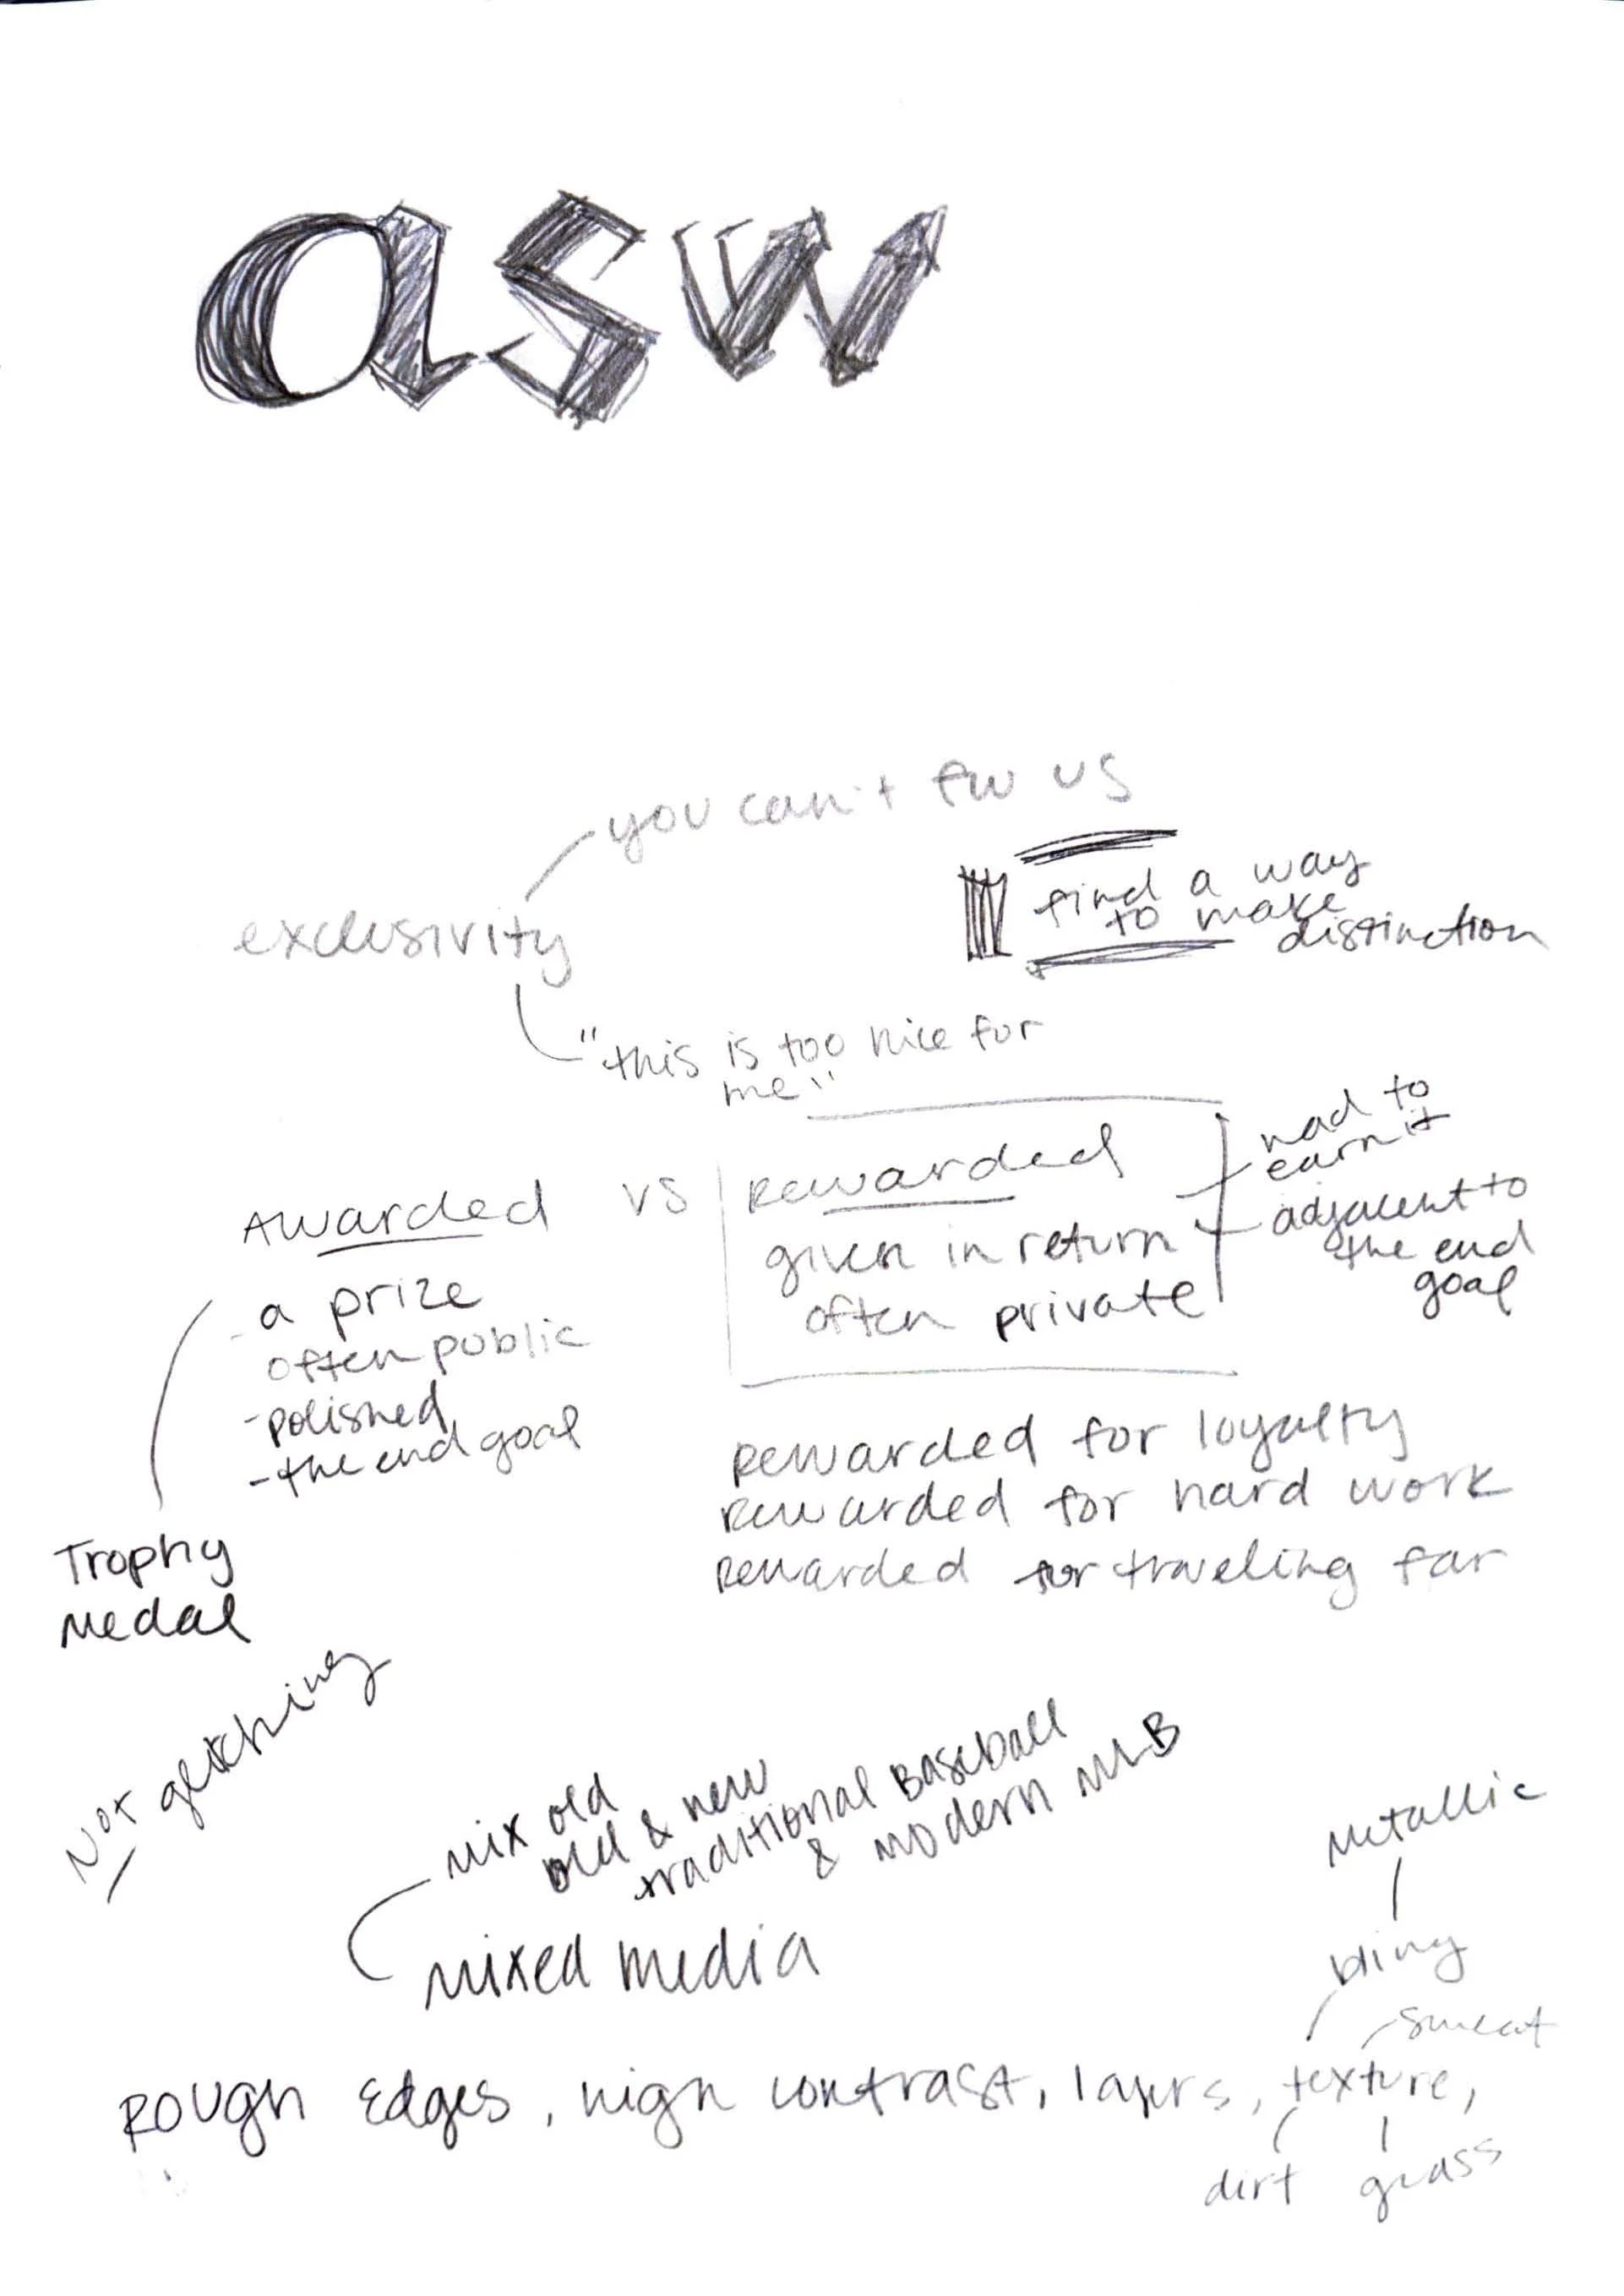 asw
you can't fw us
exclusivity
find a way
to make
distinction
"this is too nice for
me"
Awarded vs Rewarded
had to
earn it
given in return
adjacent to
the end
goal
often private
- a prize
often public
- polished
- the end goal
Rewarded for loyalty
Rewarded for hard work
Rewarded for traveling far
Trophy
Medal
Not
mix old
old & new
traditional Baseball
& modern MLB
mixed media
Metallic
bling
sweat
Rough Edges, high contrast, layers, texture,
dirt grass